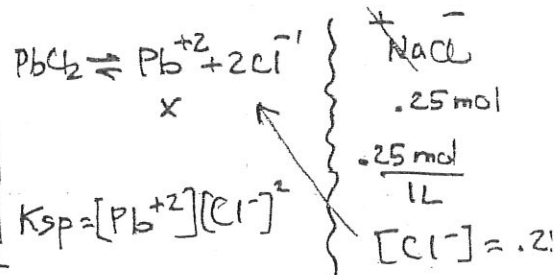 PbCl₂ ⇌ Pb⁺² + 2Cl⁻¹
x
Ksp = [Pb⁺²][Cl⁻]²
+ −
NaCl
.25 mol
.25 mol
1L
[Cl⁻] = .2